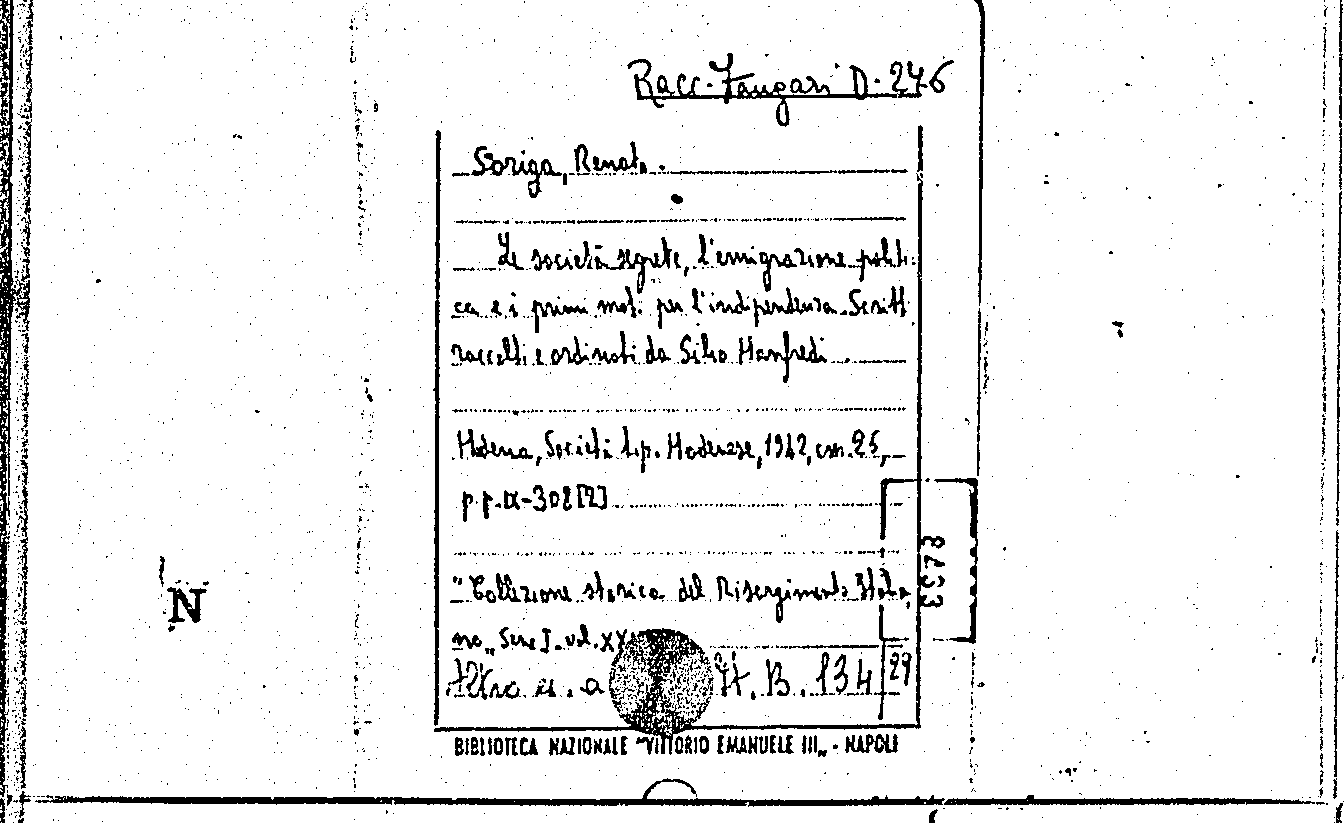 Racc. D. 246
Soriga, Renato.
Le società segrete, l'emigrazione politi-
ca e i primi moti per l'indipendenza. Scritti
raccolti e ordinati da Silvio Manfredi
Modena, Società tip. Modenese, 1942, cm. 25,
pp. IX-308 [2]
"Collezione storica del Risorgimento Italia
no„ Serie I. vol. XX
Altro es. a It. B. 134 29
3378
N
BIBLIOTECA NAZIONALE "VITTORIO EMANUELE III„ - NAPOLI